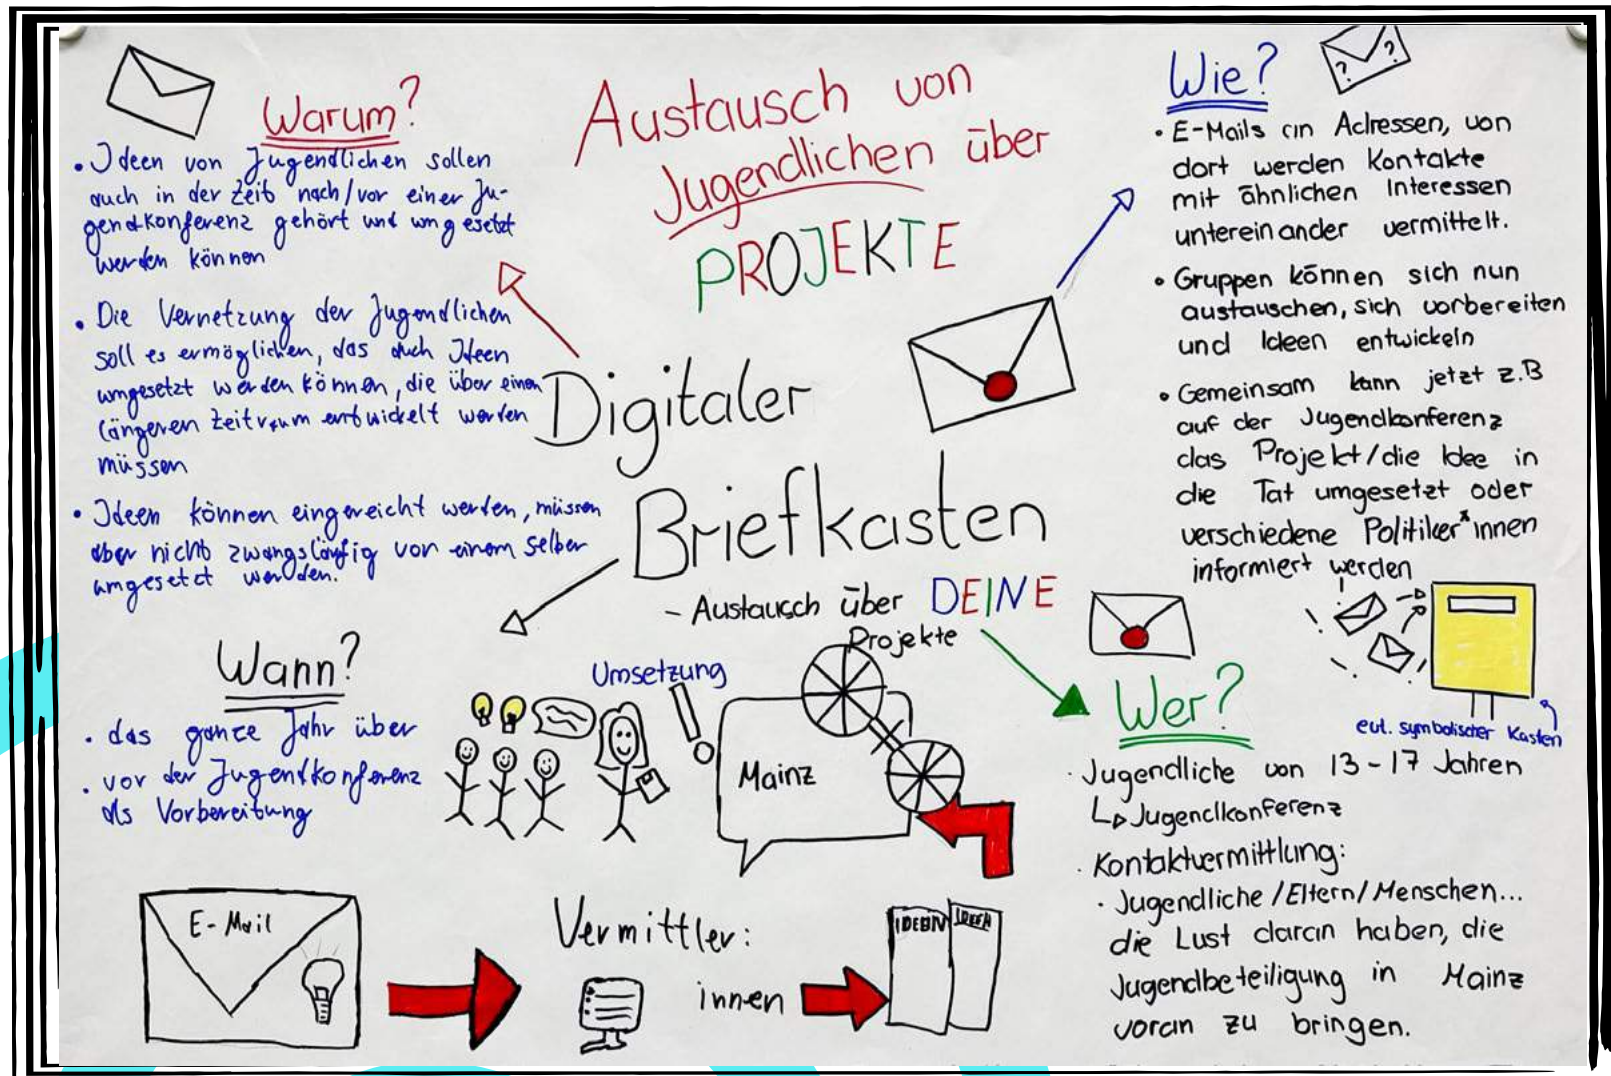 Warum?
• Ideen von Jugendlichen sollen
auch in der Zeit nach/vor einer Ju-
gendkonferenz gehört und umgesetzt
werden können
• Die Vernetzung der Jugendlichen
soll es ermöglichen, das auch Ideen
umgesetzt werden können, die über einen
längeren Zeitraum entwickelt werden
müssen
• Ideen können eingereicht werden, müssen
aber nicht zwangsläufig von einem selber
umgesetzt werden.
Austausch von
Jugendlichen über
PROJEKTE
Digitaler
Briefkasten
- Austausch über DEINE
Projekte
Wie?
? ?
• E-Mails an Adressen, von
dort werden Kontakte
mit ähnlichen Interessen
untereinander vermittelt.
• Gruppen können sich nun
austauschen, sich vorbereiten
und Ideen entwickeln
• Gemeinsam kann jetzt z.B
auf der Jugendkonferenz
das Projekt/die Idee in
die Tat umgesetzt oder
verschiedene Politiker*innen
informiert werden
evt. symbolischer Kasten
Wann?
• das ganze Jahr über
• vor der Jugendkonferenz
als Vorbereitung
Umsetzung
!
Mainz
Wer?
· Jugendliche von 13-17 Jahren
↳ Jugendkonferenz
· Kontaktvermittlung:
· Jugendliche/Eltern/Menschen...
die Lust daran haben, die
Jugendbeteiligung in Mainz
voran zu bringen.
E-Mail
Vermittler:
innen
IDEEN IDEEN